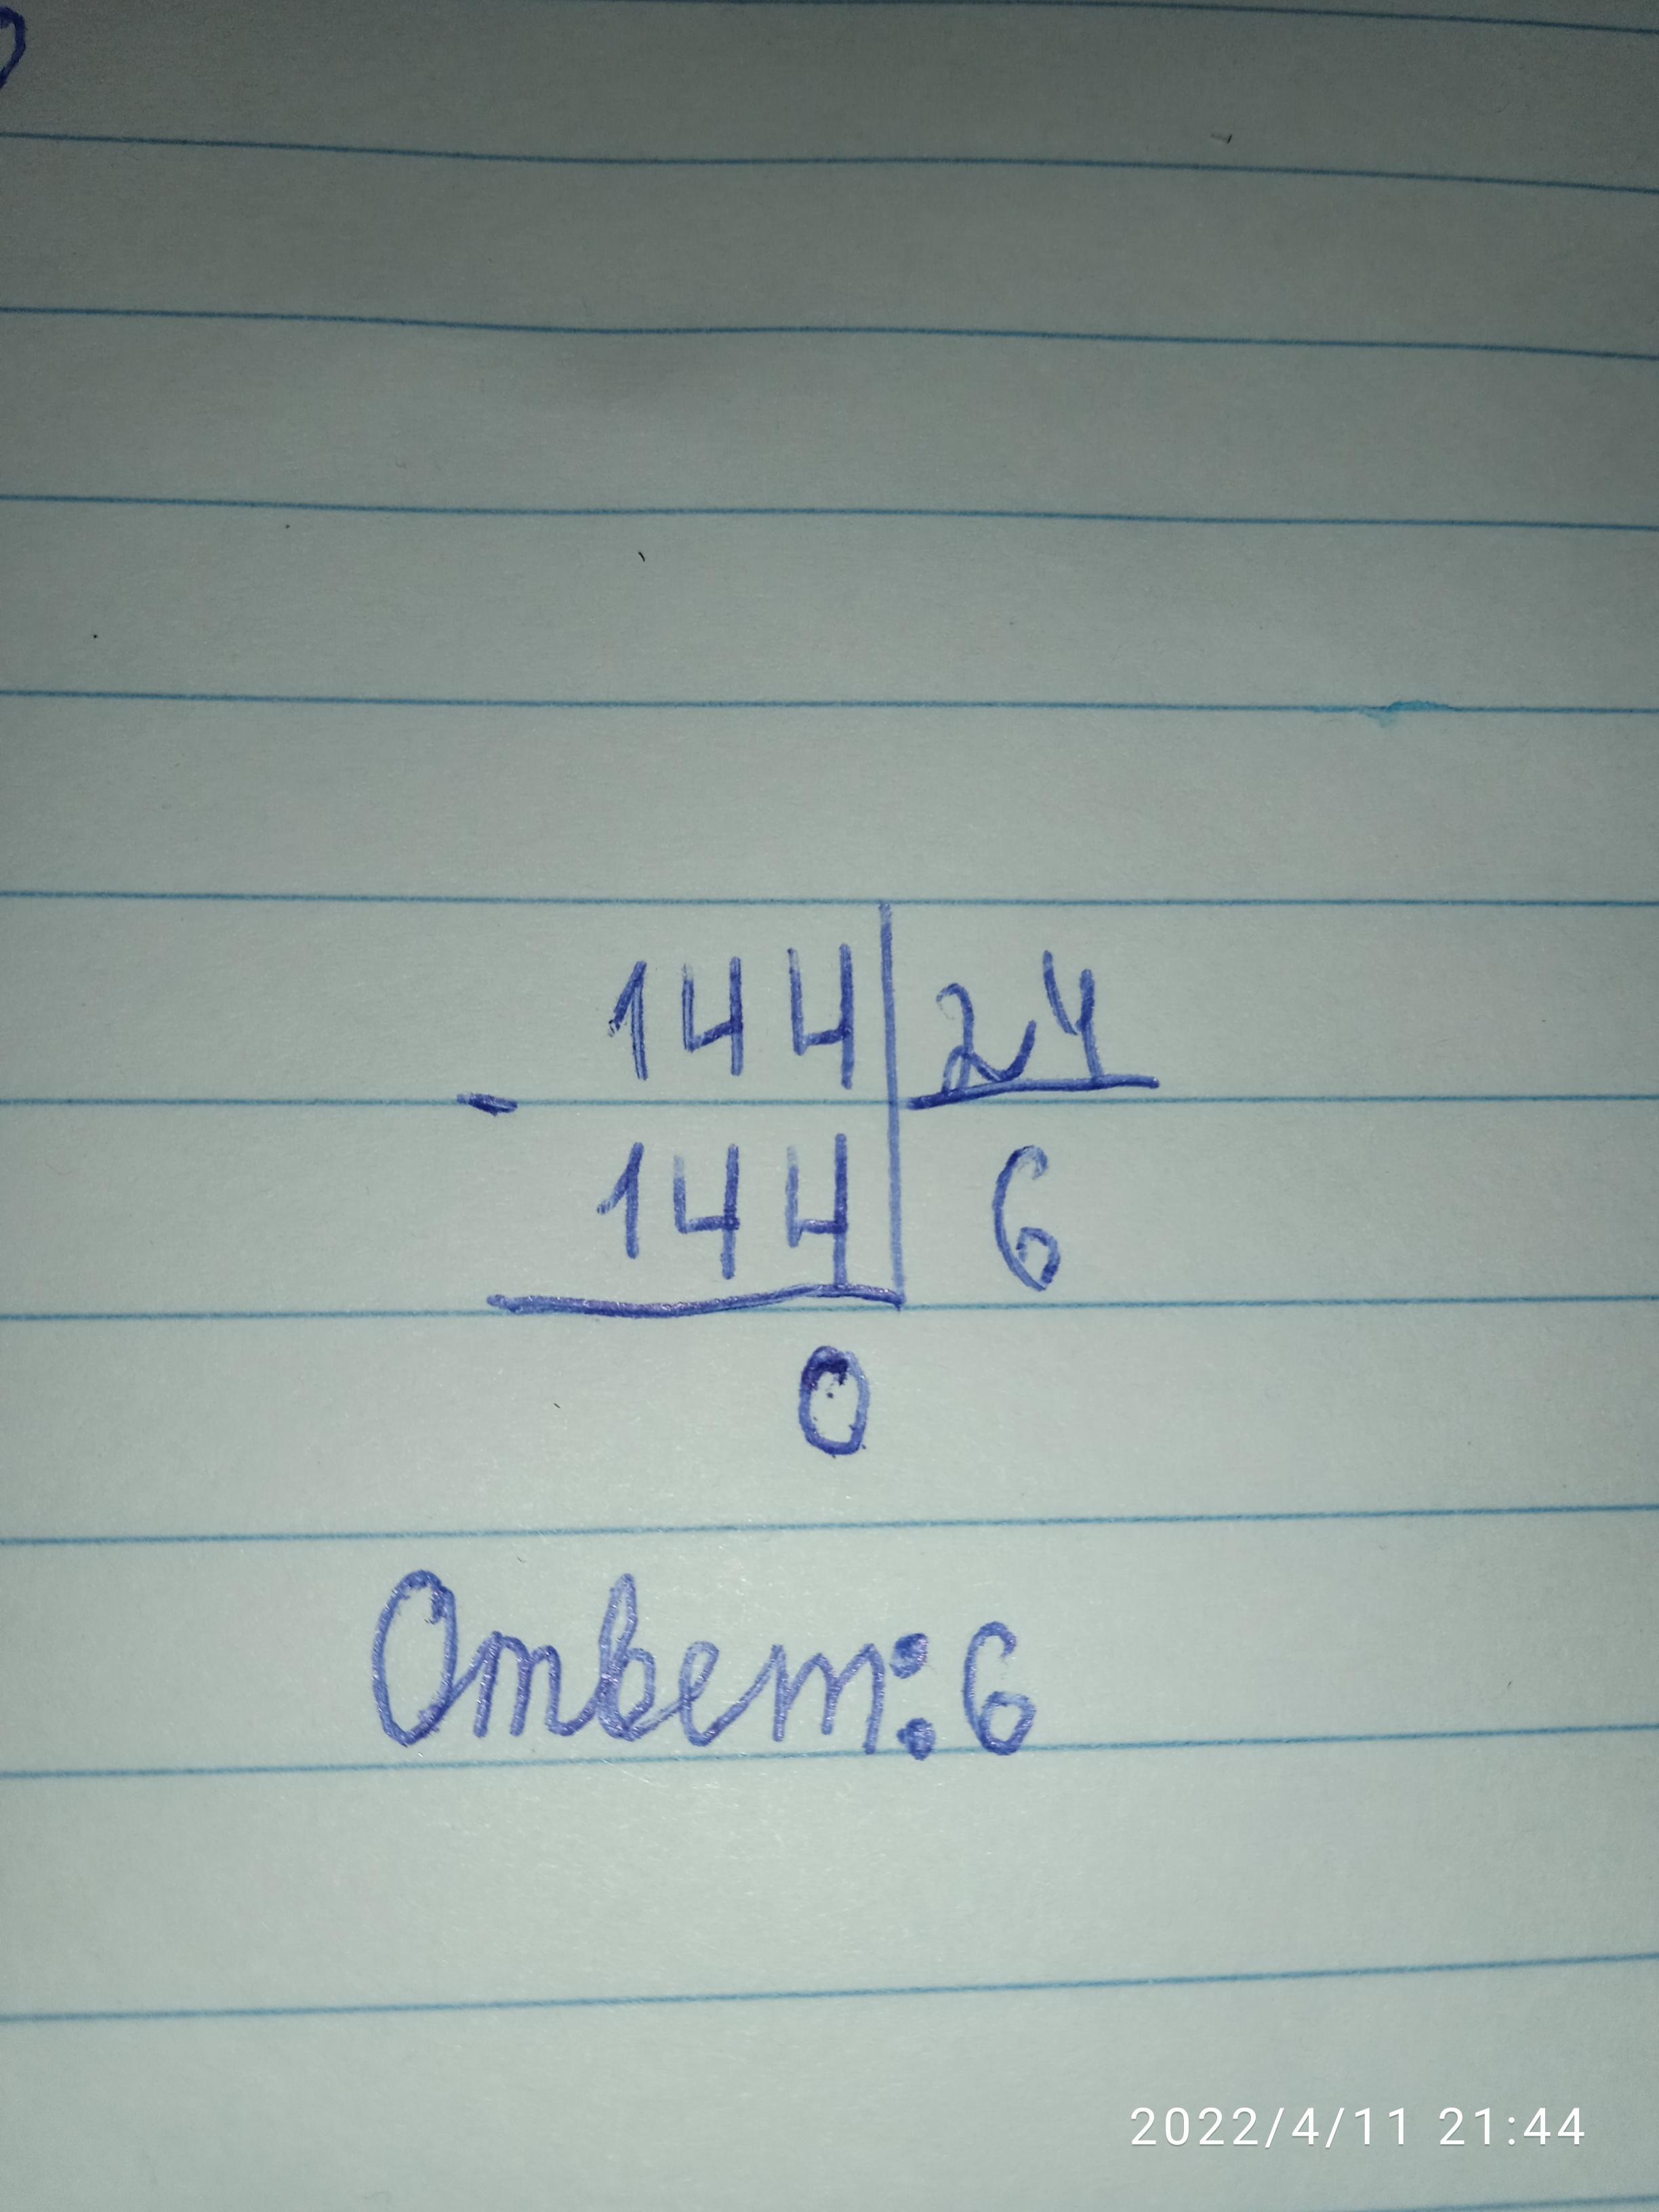 144 24
-
144 6
0
Ответ: 6
2022/4/11 21:44